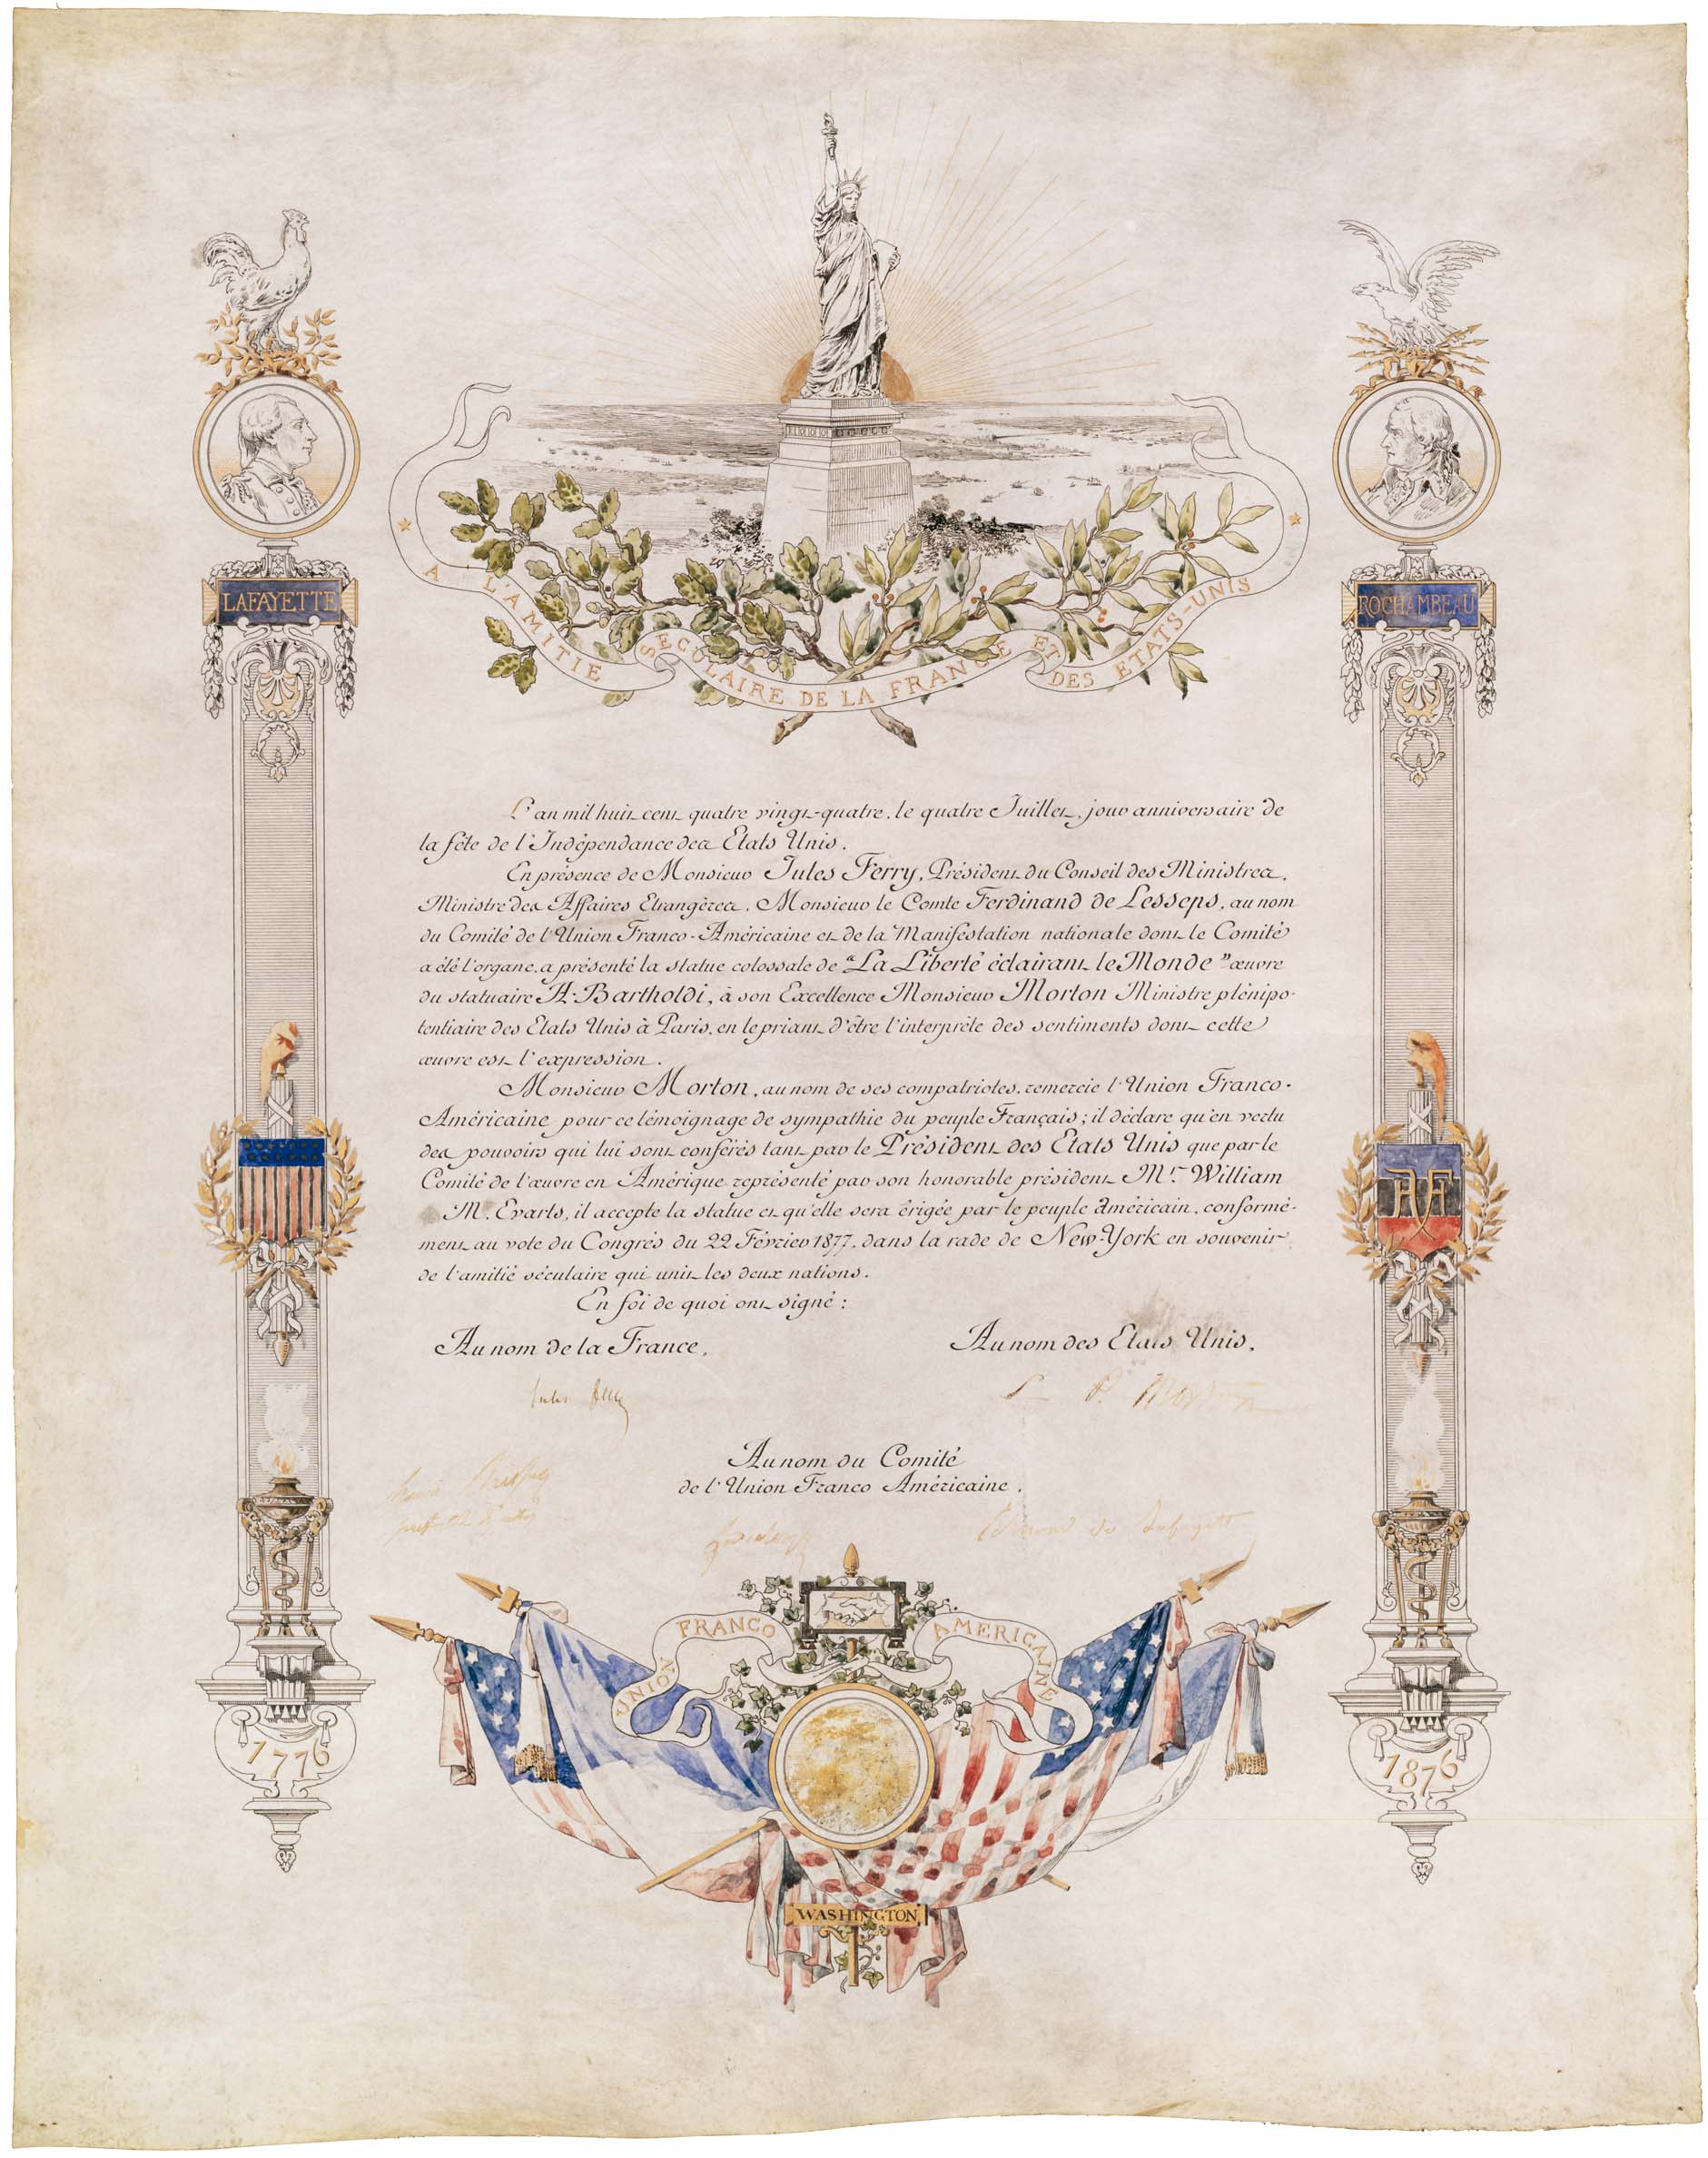 LAFAYETTE
ROCHAMBEAU
A L'AMITIE SECULAIRE DE LA FRANCE ET DES ETATS-UNIS
L'an mil huit cent quatre vingt-quatre, le quatre Juillet, jour anniversaire de
la fête de l'Indépendance des Etats Unis.
En présence de Monsieur Jules Ferry, Président du Conseil des Ministres,
Ministre des Affaires Etrangères, Monsieur le Comte Ferdinand de Lesseps, au nom
du Comité de l'Union Franco-Américaine et de la Manifestation nationale dont le Comité
a été l'organe, a présenté la statue colossale de "La Liberté éclairant le Monde" œuvre
du statuaire A. Bartholdi, à son Excellence Monsieur Morton Ministre plénipo-
tentiaire des Etats Unis à Paris, en le priant d'être l'interprète des sentiments dont cette
œuvre est l'expression.
Monsieur Morton, au nom de ses compatriotes, remercie l'Union Franco-
Américaine pour ce témoignage de sympathie du peuple Français; il déclare qu'en vertu
des pouvoirs qui lui sont conférés tant par le Président des Etats Unis que par le
Comité de l'œuvre en Amérique représenté par son honorable président Mr. William
M. Evarts, il accepte la statue et qu'elle sera érigée par le peuple Américain, conformé-
ment au vote du Congrès du 22 Février 1877, dans la rade de New-York en souvenir
de l'amitié séculaire qui unit les deux nations.
En foi de quoi ont signé:
Au nom de la France,
Au nom des Etats Unis,
Jules Ferry
L. P. Morton
Au nom du Comité
de l'Union Franco Américaine.
Edmond de Lafayette
UNION FRANCO AMERICAINE
1776
1876
WASHINGTON